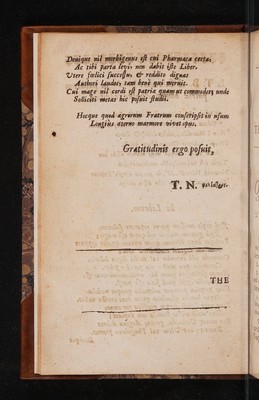 Denique nil morbigenus est cui Pharmaca certa,
Ac tibi parta levi: non dabit iste Liber.
Utere fœlici successu, & reddito dignas
Authori laudes, tam benè qui meruit.
Cui mage nil cordi est patria quam ut commodet, unde
Soliciti metas hic posuit studii.
Hocque quod agrorum Fratrum conscripsit in usum
Longius æterno marmore vivat opus.
Gratitudinis ergo posuit,
T. N.
THE